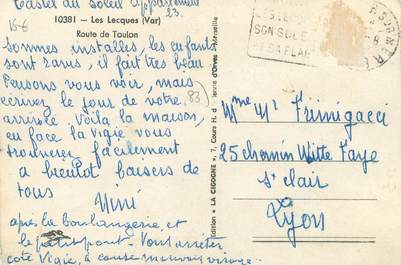 Castel du Soleil Appartement
23.
10381 - Les Lecques (Var)
Route de Toulon
Sommes installés, les enfants
sont ravis, il fait très beau
Pensons vous voir, mais
écrivez le jour de votre
arrivée. Voilà la maison,
en face la Vigie vous
trouverez facilement
à bientôt baisers de
tous
Mimi
après la boulangerie, et
le petit pont - Vous arrêter
côté Vigie, à cause mauvais virage.
Edition « LA CIGOGNE », 7, Cours H. d'Estienne d'Orves - Marseille
SON SOLEIL
SA PLAGE
Mme Mr
25 chemin Witte Faye
St clair
Lyon